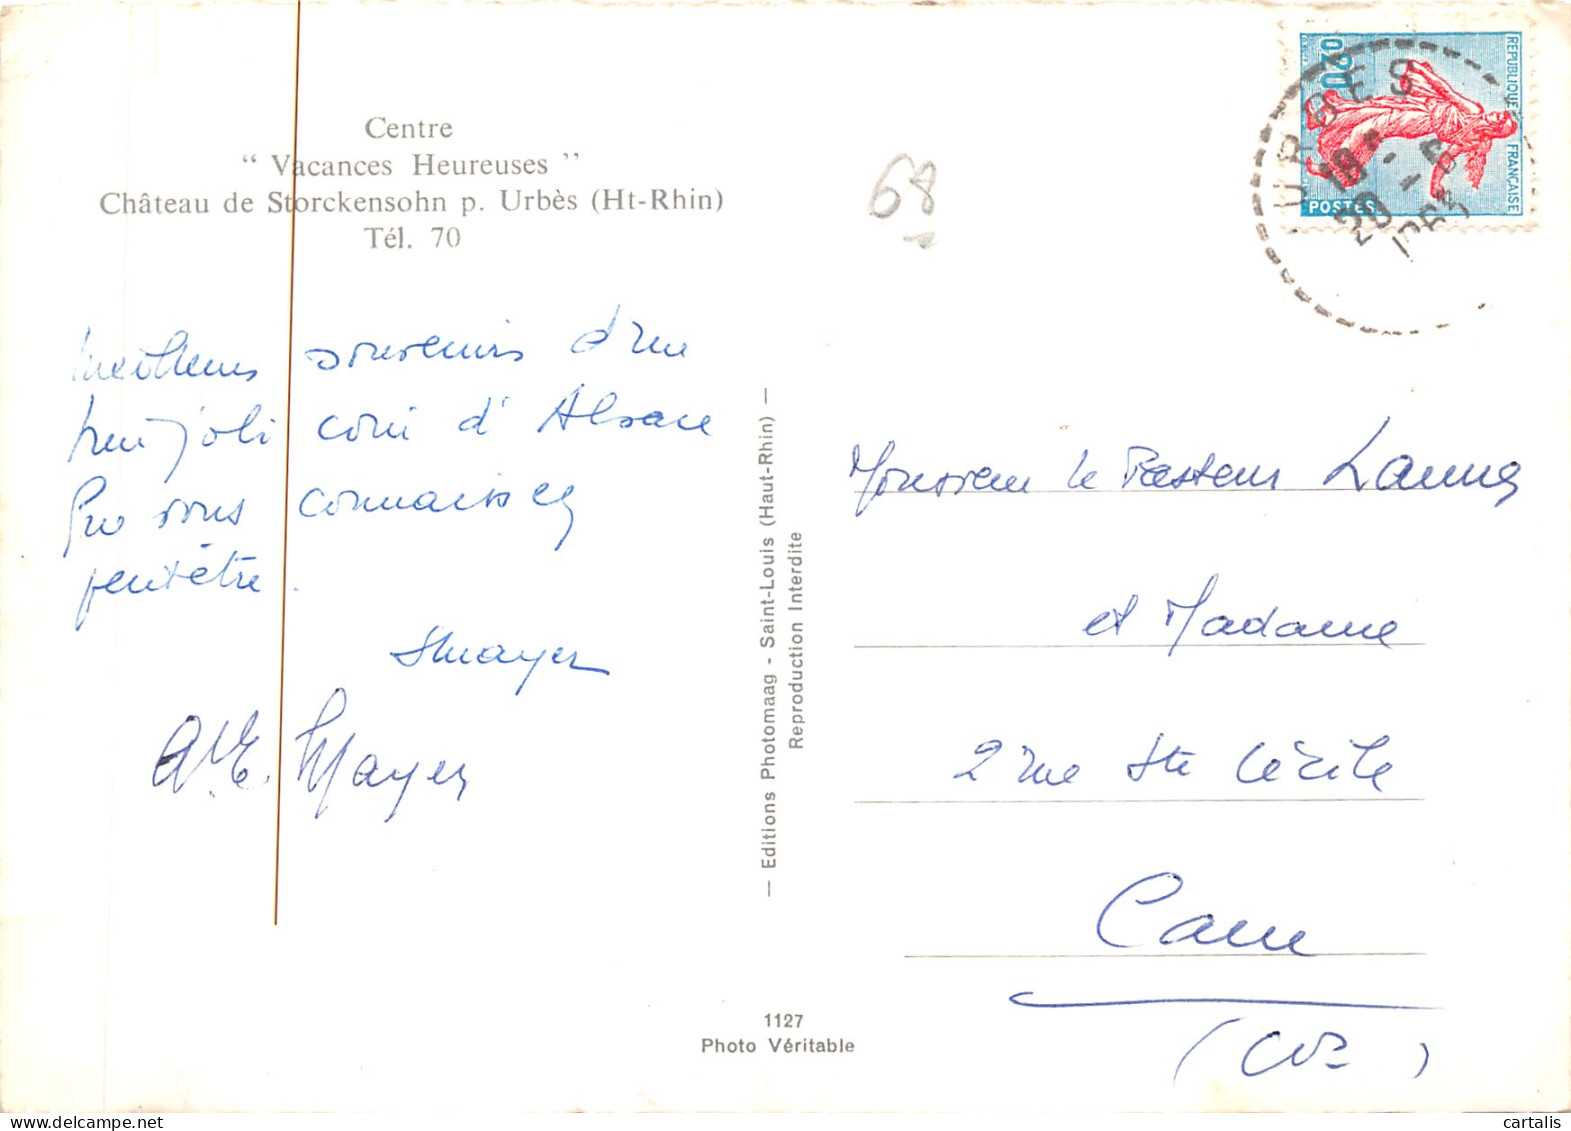 Centre
“ Vacances Heureuses ”
Château de Storckensohn p. Urbès (Ht-Rhin)
Tél. 70
68
0,20
REPUBLIQUE FRANÇAISE
POSTES
URBES
18
20 -
1965
Meilleurs souvenirs d'un
joli coin d'Alsace
vous connaissez
peut-être.
Mayer
Mayer
— Editions Photomaag - Saint-Louis (Haut-Rhin) —
Reproduction Interdite
Monsieur le Pasteur
et Madame
2 rue Ste Cécile
Caen
1127
Photo Véritable
cartalis